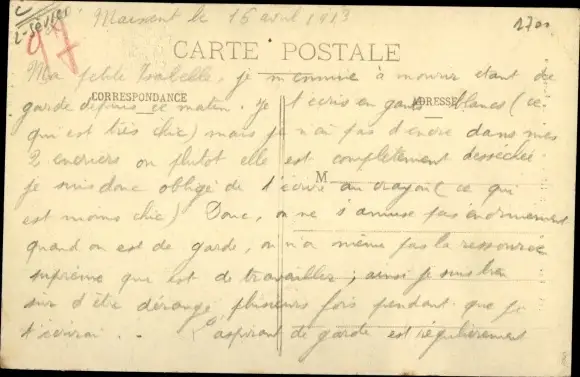 Maixent le 15 avril 1913
2700
2-Sèvres
97
CARTE POSTALE
Ma petite Isabelle, je m'ennuie à mourir étant de
garde depuis ce matin. Je t'écris en gants blancs (ce
CORRESPONDANCE
ADRESSE
qui est très chic) mais je n'ai pas d'encre dans mes
2 encriers ou plutot elle est complètement desséchée
M
je suis donc obligé de t'écrire au crayon (ce qui
est moins chic) Donc, on ne s'amuse pas énormément
quand on est de garde, on n'a même pas la ressource
suprême qui est de travailler; ainsi je suis bien
sur d'être dérangé plusieurs fois pendant que je
t'écrirai . . L'aspirant de garde est régulièrement